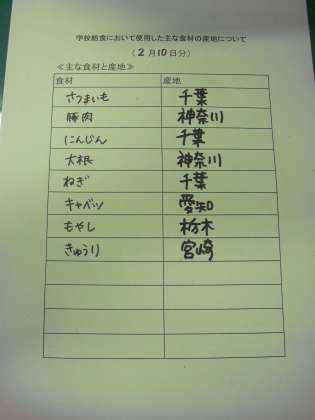 学校給食において使用した主な食材の産地について
(2月10日分)
≪主な食材と産地≫
食材 産地
さつまいも 千葉
豚肉 神奈川
にんじん 千葉
大根 神奈川
ねぎ 千葉
キャベツ 愛知
もやし 栃木
きゅうり 宮崎